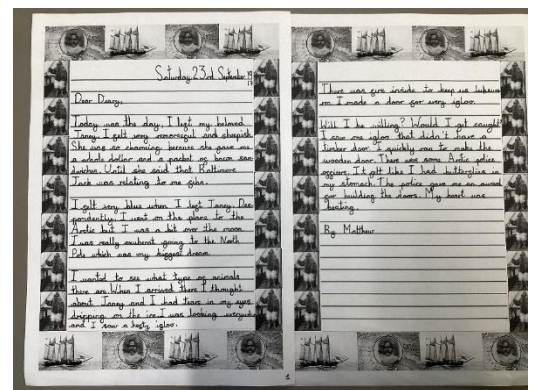 Saturday 23rd September 19
17
Dear Diary,
Today was the day. I left my beloved
Janey. I felt very remorseful and sheepish.
She was so charming because she gave me
a whole dollar and a packet of bacon san-
dwiches. Until she said that Baltimore
Jack was relating to me fibs.
I felt very blue when I left Janey. Des-
pondently, I went on the plane to the
Arctic but I was a bit over the moon.
I was really exuberant going to the North
Pole which was my biggest dream.
I wanted to see what type of animals
there are. When I arrived there I thought
about Janey and I had tears in my eyes
dripping on the ice. I was looking
and I saw a hefty igloo.
1
There was fire inside to keep us
I made a door for every igloo.
Will I be willing? Would I get caught?
I saw one igloo that didn't have a
timber door. I quickly ran to make the
wooden door. There was some Artic police
officers. It felt like I had butterflies in
my stomach. The police gave me an award
for building the doors. My heart was
beating.
By Matthew